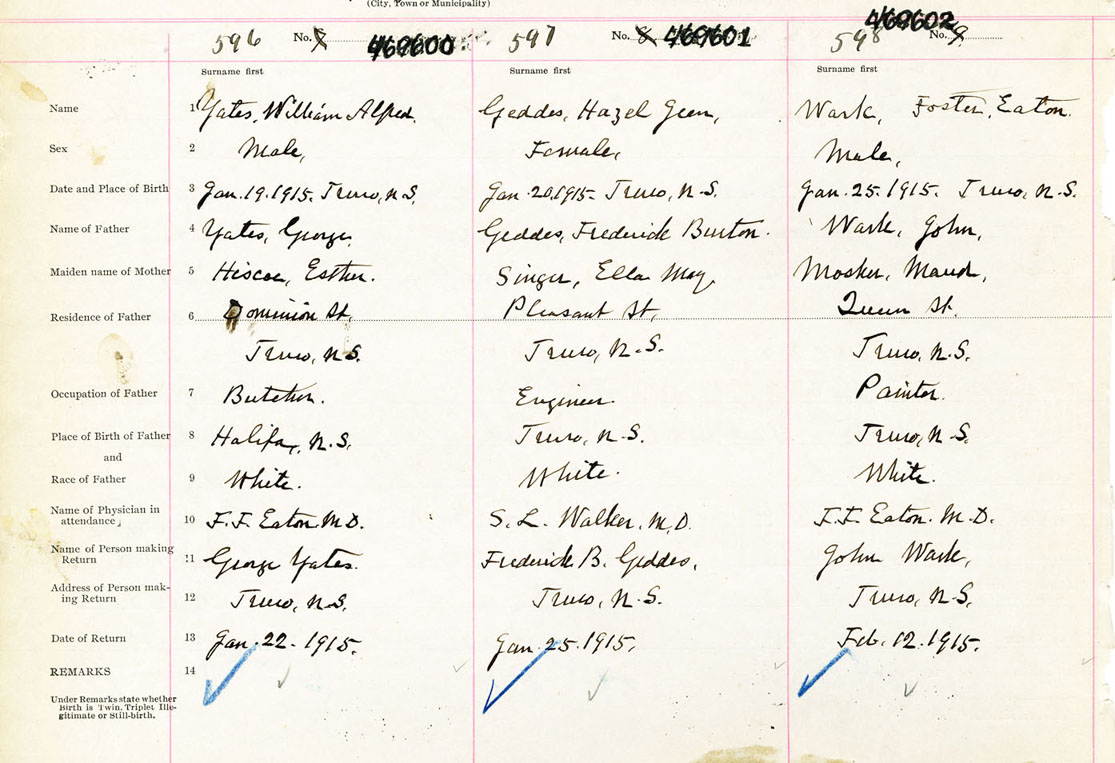 (City, Town or Municipality)
596 No. 7 469600 597 No. 8 469601 598 No. 9 469602
Surname first Surname first Surname first
Name 1 Yates, William Alfred. Geddes, Hazel Wark, Foster, Eaton.
Sex 2 Male, Female, Male,
Date and Place of Birth 3 Jan. 19. 1915. Truro, N.S. Jan. 20. 1915. Truro, N.S. Jan. 25. 1915. Truro, N.S.
Name of Father 4 Yates, George. Geddes, Frederick Burton. Wark, John,
Maiden name of Mother 5 Esther. Singer, Ella May. Mosher, Maud,
Residence of Father 6 Dominion St, Pleasant St, Queen St.
Truro, N.S. Truro, N.S. Truro, N.S.
Occupation of Father 7 Butcher. Engineer. Painter.
Place of Birth of Father 8 Halifax, N.S. Truro, N.S. Truro, N.S.
and
Race of Father 9 White. White. White.
Name of Physician in
attendance, 10 F.F. Eaton. M.D. S. L. Walker, M.D. F.F. Eaton. M.D.
Name of Person making
Return 11 George Yates. Frederick B. Geddes, John Wark,
Address of Person mak-
ing Return 12 Truro, N.S. Truro, N.S. Truro, N.S.
Date of Return 13 Jan. 22. 1915. Jan. 25. 1915. Feb. 12. 1915.
REMARKS 14
Under Remarks state whether
Birth is Twin, Triplet Ille-
gitimate or Still-birth.